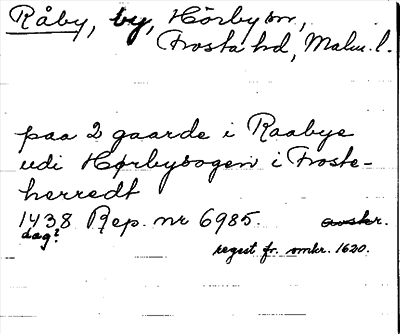 Råby, by, Hörby sn,
Frosta hd, Malm. l.
paa 2 gaarde i Raabye
udi Hørbysogen i Froste-
herredt
1438 Rep. nr 6985. avskr.
dag?
regest fr. omkr. 1620.